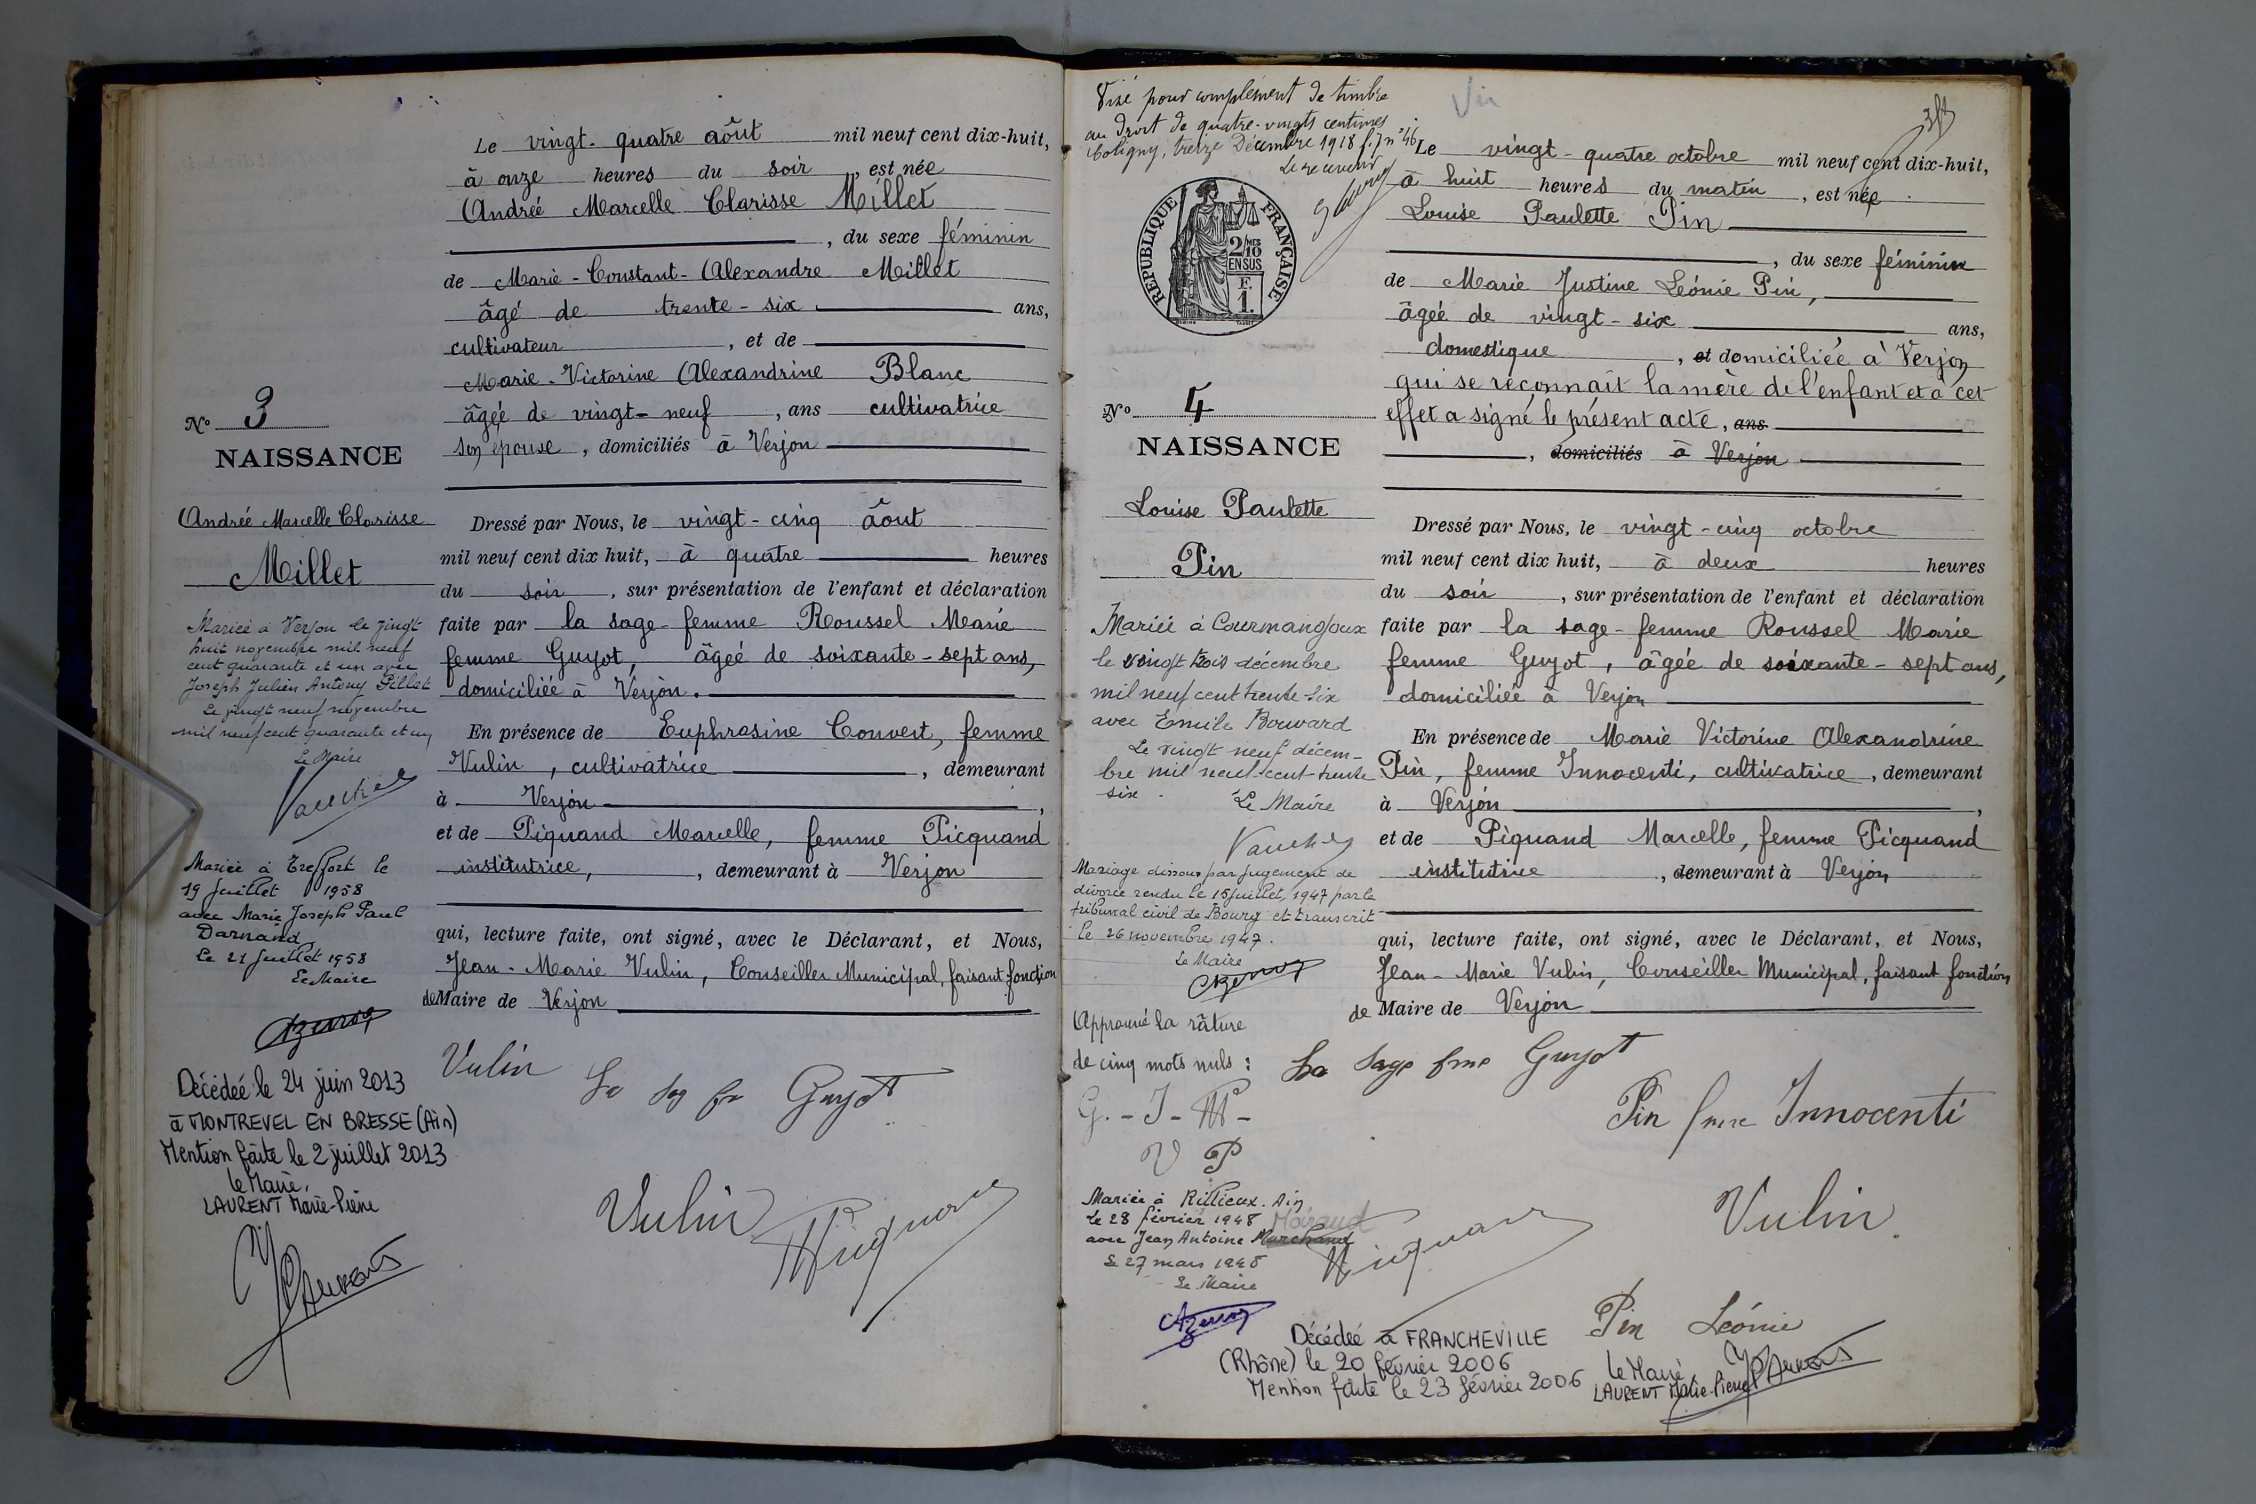 Le vingt-quatre aôut mil neuf cent dix-huit,
à onze heures du soir, est née
Andrée Marcelle Clarisse Millet
, du sexe féminin
de Marie-Constant-Alexandre Millet
âgé de trente-six ans,
cultivateur, et de
Marie-Victorine Alexandrine Blanc
âgée de vingt-neuf, ans cultivatrice
son épouse, domiciliés à Verjon
N° 3
NAISSANCE
Andrée Marcelle Clarisse
Millet
Mariée à Verjon le vingt
huit novembre mil neuf
cent quarante et un avec
Joseph Julien Antony Pillet
Le vingt neuf novembre
mil neuf cent quarante et un
Le Maire
Mariée à Treffort le
19 Juillet 1958
avec Marie Joseph Paul
Darnand
Le 21 Juillet 1958
Le Maire
Décédée le 24 juin 2013
à MONTREVEL EN BRESSE (Ain)
Mention faite le 2 juillet 2013
le Maire,
LAURENT Marie-Pierre
Dressé par Nous, le vingt-cinq âout
mil neuf cent dix huit, à quatre heures
du soir, sur présentation de l'enfant et déclaration
faite par la sage-femme Roussel Marie
femme Guyot, âgée de soixante-sept ans,
domiciliée à Verjon.
En présence de Euphrasine Convert, femme
Vulin, cultivatrice, demeurant
à Verjon,
et de Piquand Marcelle, femme Picquand
institutrice, , demeurant à Verjon
qui, lecture faite, ont signé, avec le Déclarant, et Nous,
Jean-Marie Vulin, Conseiller Municipal, faisant fonction
de Maire de Verjon
Vulin La sag fe Guyot
Vulin
Visé pour complément de timbre
au droit de quatre-vingts centimes
Coligny, treize Décembre 1918 f. 7 n° 46
Le receveur
RÉPUBLIQUE FRANÇAISE
2/MES
10
EN SUS
F.
1.
Le vingt-quatre octobre mil neuf cent dix-huit,
à huit heures du matin, est née
Louise Paulette Pin
, du sexe féminin
de Marie Justine Léonie Pin,
âgée de vingt-six ans,
domestique, et domiciliée à Verjon
qui se reconnaît la mère de l'enfant et à cet
effet a signé le présent acte, ans
, domiciliés à Verjon
N° 4
NAISSANCE
Louise Paulette
Pin
Mariée à Courmangoux
le vingt trois décembre
mil neuf cent trente-six
avec Emile Bouvard
Le vingt neuf décem-
bre mil neuf cent trente
six.
Le Maire
Mariage dissous par jugement de
divorce rendu le 15 juillet 1947 par le
tribunal civil de Bourg et transcrit
le 26 novembre 1947.
Le Maire
Approuvé la râture
de cinq mots nuls :
G. - I - M -
V P
Mariée à Rillieux. Ain
Le 28 février 1948
avec Jean Antoine Marchand
Le 27 mars 1948
Le Maire
Dressé par Nous, le vingt-cinq octobre
mil neuf cent dix huit, à deux heures
du soir, sur présentation de l'enfant et déclaration
faite par la sage-femme Roussel Marie
femme Guyot, âgée de soixante-sept ans,
domiciliée à Verjon
En présence de Marie Victorine Alexandrine
Pin, femme Innocenti, cultivatrice, demeurant
à Verjon,
et de Piquand Marcelle, femme Picquand
institutrice, demeurant à Verjon
qui, lecture faite, ont signé, avec le Déclarant, et Nous,
Jean-Marie Vulin, Conseiller Municipal, faisant fonction
de Maire de Verjon
La sage fme Guyot
Pin fme Innocenti
Vulin
Pin Léonie
Décédée à FRANCHEVILLE
(Rhône) le 20 février 2006
Mention faite le 23 février 2006
le Maire,
LAURENT Marie-Pierre